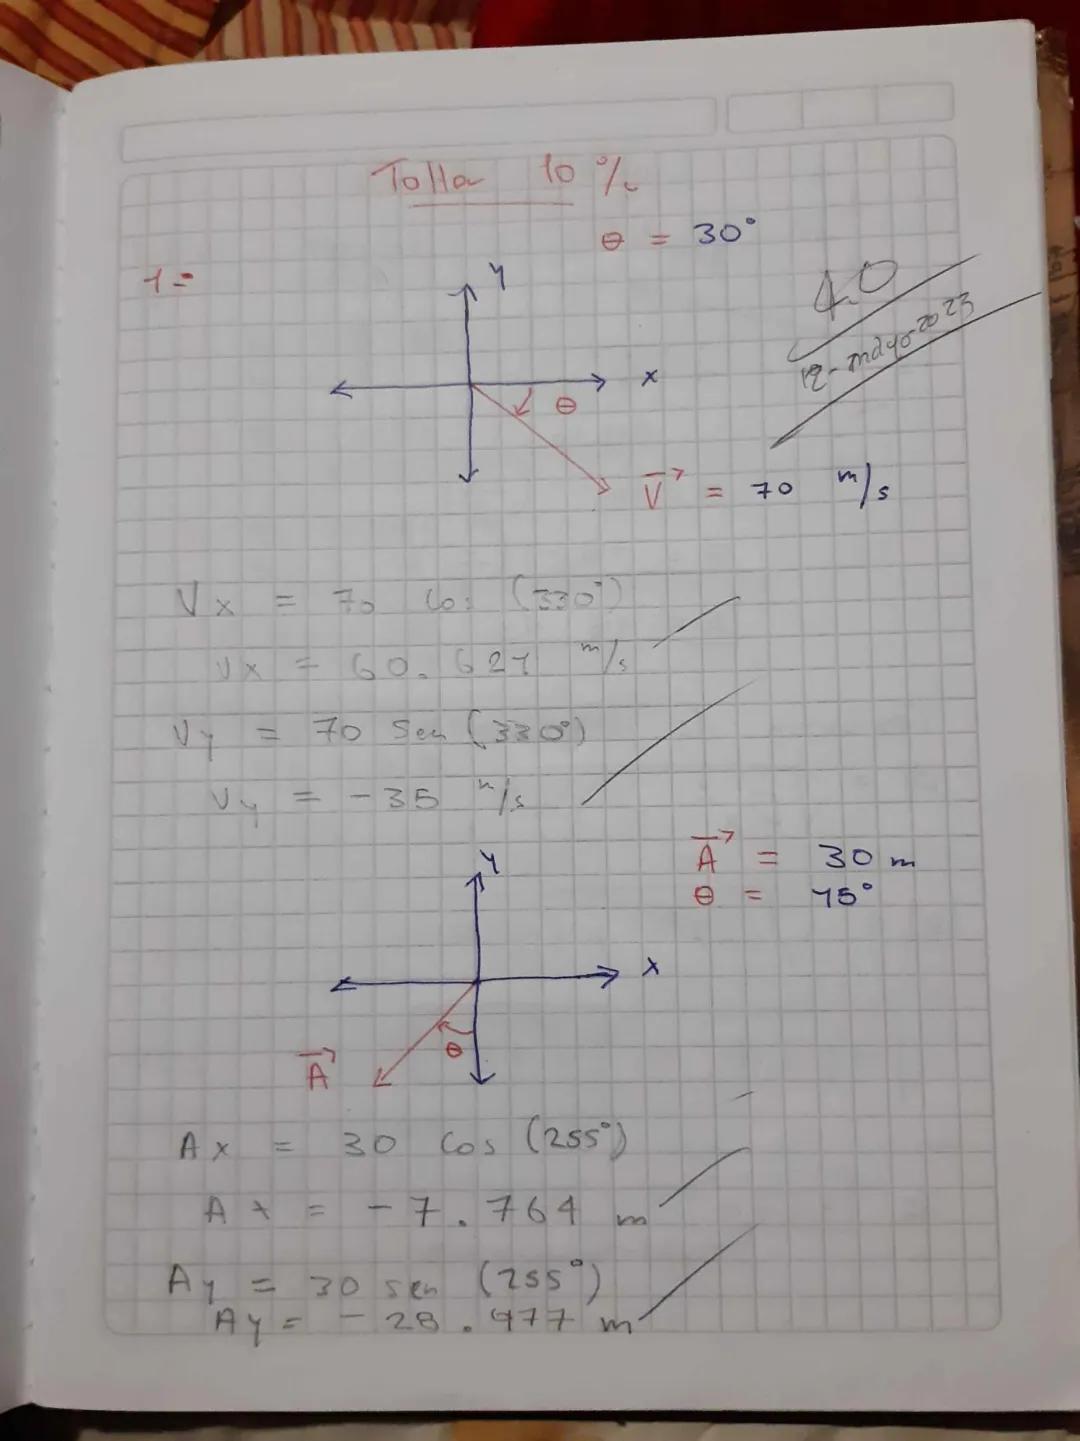 Taller 10 %
θ = 30°
1=
4.0
12-mayo-2023
y
x
θ
V = 70 m/s
Vx = 70 Cos (330°)
Vx = 60.621 m/s
Vy = 70 Sen (330°)
Vy = -35 m/s
A = 30 m
θ = 15°
y
x
θ
A
Ax = 30 Cos (255°)
Ax = -7.764 m
Ay = 30 sen (255°)
Ay = -28.977 m